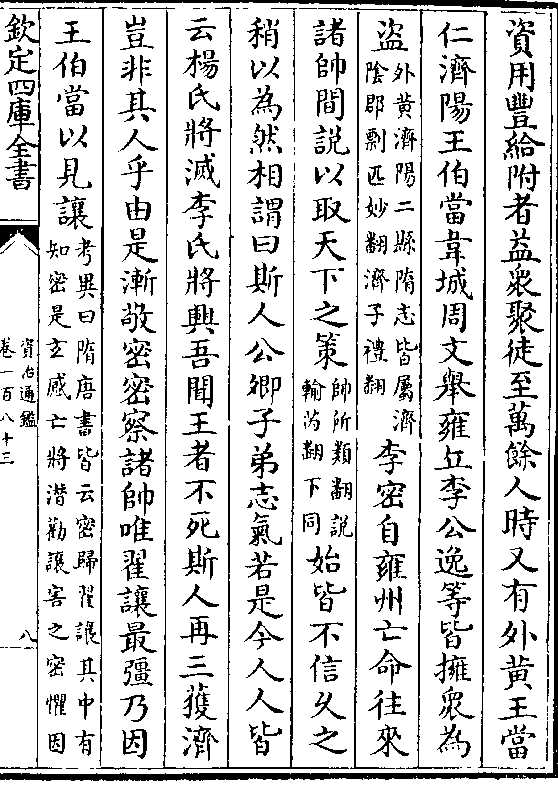 資用豐給附者益衆聚徒至萬餘人時又有外黄王當
仁濟陽王伯當韋城周文舉雍丘李公逸等皆擁衆為
盜外黄濟陽二縣隋志皆屬濟
陰郡剽匹妙翻濟子禮翻李密自雍州亡命往來
諸帥間説以取天下之策帥所類翻説
輸芮翻下同始皆不信乆之
稍以為然相謂曰斯人公卿子弟志氣若是今人人皆
云楊氏將滅李氏將興吾聞王者不死斯人再三獲濟
豈非其人乎由是漸敬密密察諸帥唯翟讓最彊乃因
王伯當以見讓考異曰隋唐書皆云密歸翟讓其中有
知密是玄感亡將潜勸讓害之密懼因
欽定四庫全書
資治通鑑
卷一百八十三
八